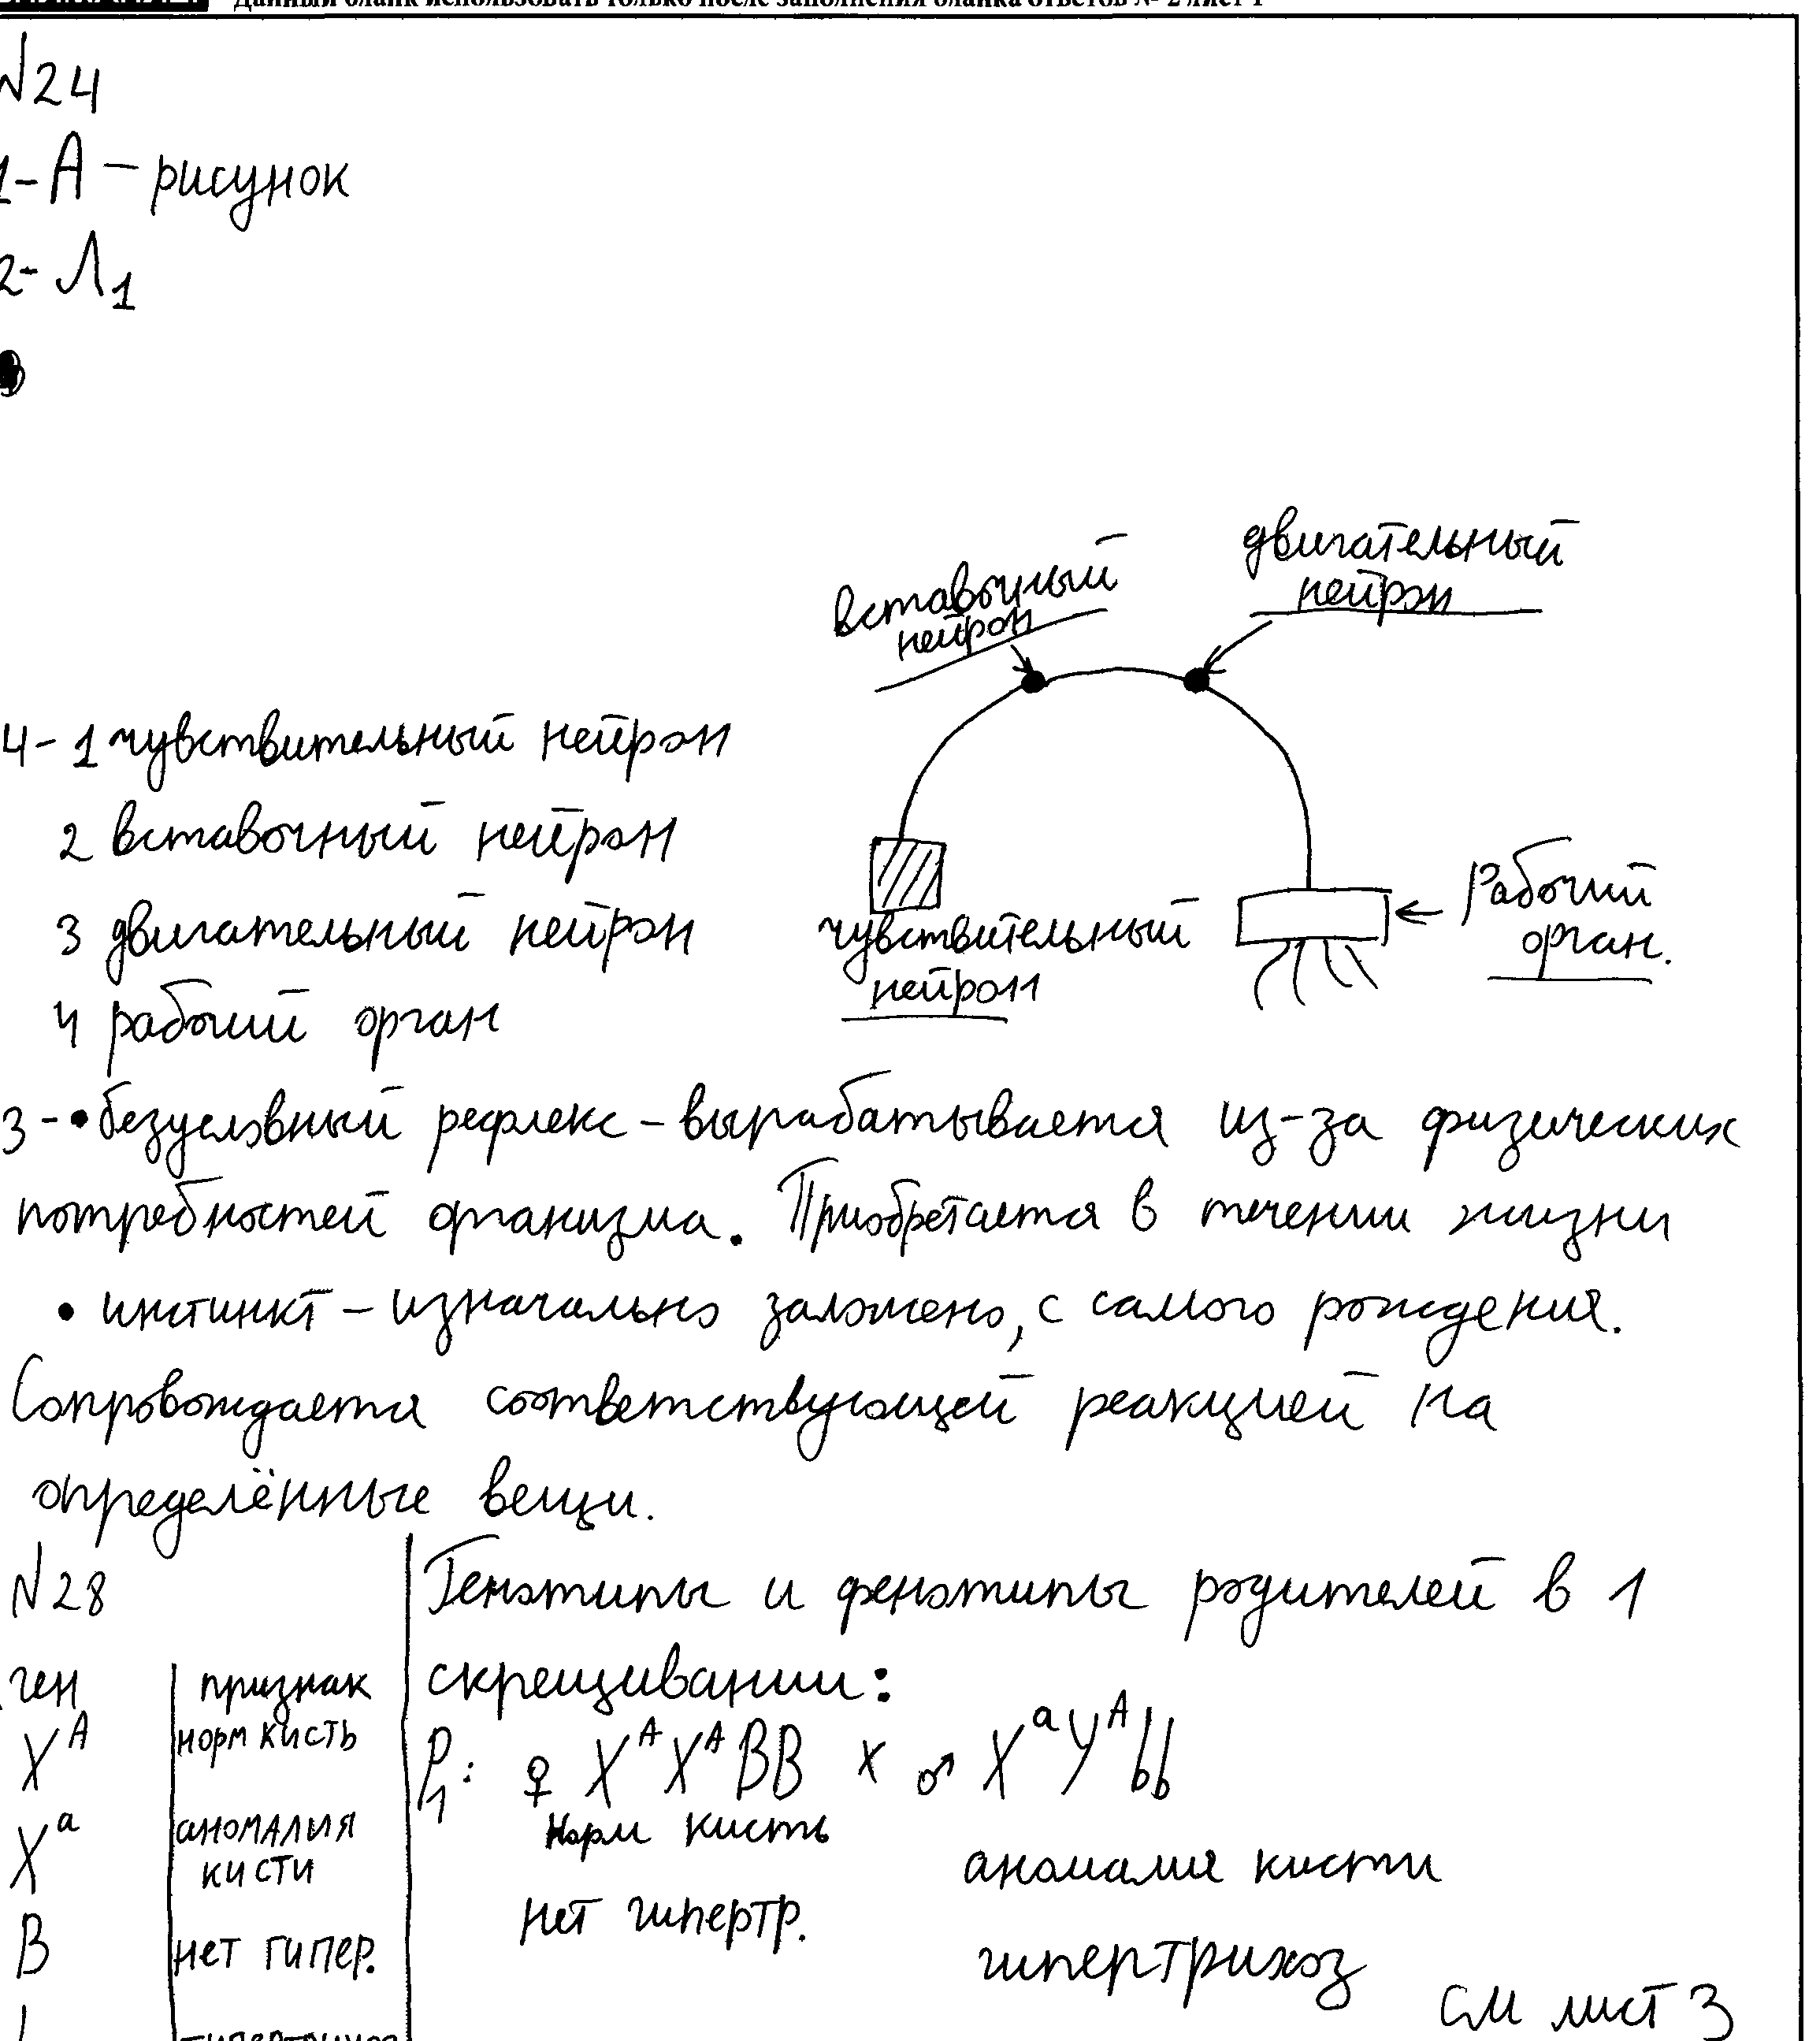 Данный бланк использовать только после заполнения бланка ответов № 2 лист 1
№24
1-А – рисунок
2- Л1
вставочный
нейрон
двигательный
нейрон
4-1 чувствительный нейрон
2 вставочный нейрон
3 двигательный нейрон
4 рабочий орган
чувствительный
нейрон
рабочий
орган.
3-•безусловный рефлекс – вырабатывается из-за физических
потребностей организма. Приобретается в течении жизни
• инстинкт – изначально заложено, с самого рождения.
Сопровождается соответствующей реакцией на
определённые вещи.
№28
ген | признак
X^A | норм кисть
X^a | аномалия
кисти
B | нет гипер.
гипертрихоз
Генотипы и фенотипы родителей в 1
скрещивании:
P1: ♀ X^A X^A BB x ♂ X^a Y^A bb
Норм кисть
аномалия кисти
нет гипертр.
гипертрихоз
см лист 3